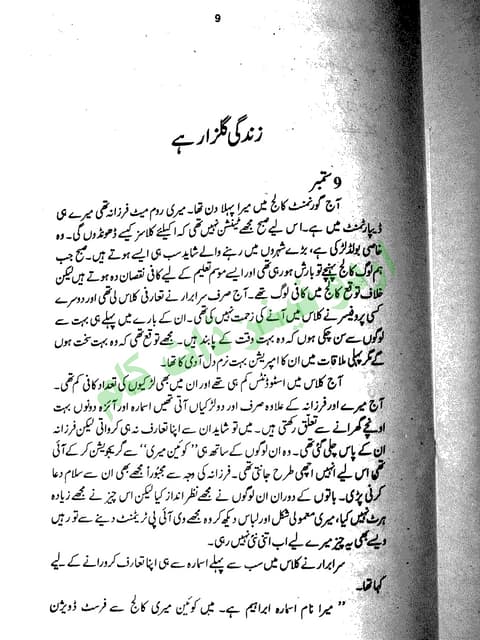 9
زندگی گلزار ہے
9 ستمبر
آج گورنمنٹ کالج میں میرا پہلا دن تھا۔ میری روم میٹ فرزانہ تھی میرے ہی
ڈیپارٹمنٹ میں ہے۔ اس لیے صبح مجھے ٹینشن نہیں تھی کہ اکیلے کلاسز کیسے ڈھونڈوں گی۔ وہ
خاصی بولڈ لڑکی ہے، بڑے شہروں میں رہنے والے شاید سب ہی ایسے ہوتے ہیں۔ صبح جب
ہم لوگ کالج پہنچے تو بارش ہو رہی تھی اور ایسے موسم تعلیم کے لیے کافی نقصان دہ ہوتے ہیں لیکن
خلاف توقع کالج میں کافی لوگ تھے۔ آج صرف سر ابرار نے تعارفی کلاس لی تھی اور دوسرے
کسی پروفیسر نے کلاس میں آنے کی زحمت نہیں کی تھی۔ ان کے بارے میں پہلے ہی بہت سے
لوگوں سے سن چکی ہوں کہ وہ بہت وقت کے پابند ہیں۔ مجھے توقع تھی کہ وہ بہت سخت ہوں
گے مگر پہلی ملاقات میں ان کا امپریشن بہت نرم دل آدمی کا تھا۔
آج کلاس میں اسٹوڈنٹس کم ہی تھے اور ان میں بھی لڑکیوں کی تعداد کافی کم تھی۔
آج میرے اور فرزانہ کے علاوہ صرف اور دو لڑکیاں آئی تھیں اسمارہ اور آئزہ دونوں بہت
اونچے گھرانے سے تعلق رکھتی ہیں۔ میں تو شاید ان سے اپنا تعارف نہ ہی کرواتی لیکن فرزانہ
ان کے پاس چلی گئی تھی۔ وہ ان لوگوں کے ساتھ ہی ’’کوئین میری‘‘ سے گریجویشن کر کے آئی
تھی اس لیے انہیں اچھی طرح جانتی تھی۔ فرزانہ کی وجہ سے مجبوراً مجھے بھی ان سے سلام دعا
کرنی پڑی۔ باتوں کے دوران ان لوگوں نے مجھے نظر انداز کیا لیکن اس چیز نے مجھے زیادہ
ہرٹ نہیں کیا، میری معمولی شکل اور لباس دیکھ کر وہ مجھے وی آئی پی ٹریٹمنٹ دینے سے تو رہیں
ویسے بھی یہ چیز میرے لیے اب اتنی نئی نہیں رہی۔
سر ابرار نے کلاس میں سب سے پہلے اسمارہ سے ہی اپنا تعارف کرورانے کے لیے
کہا تھا۔
’’میرا نام اسمارہ ابراہیم ہے۔ میں کوئین میری کالج سے فرسٹ ڈویژن